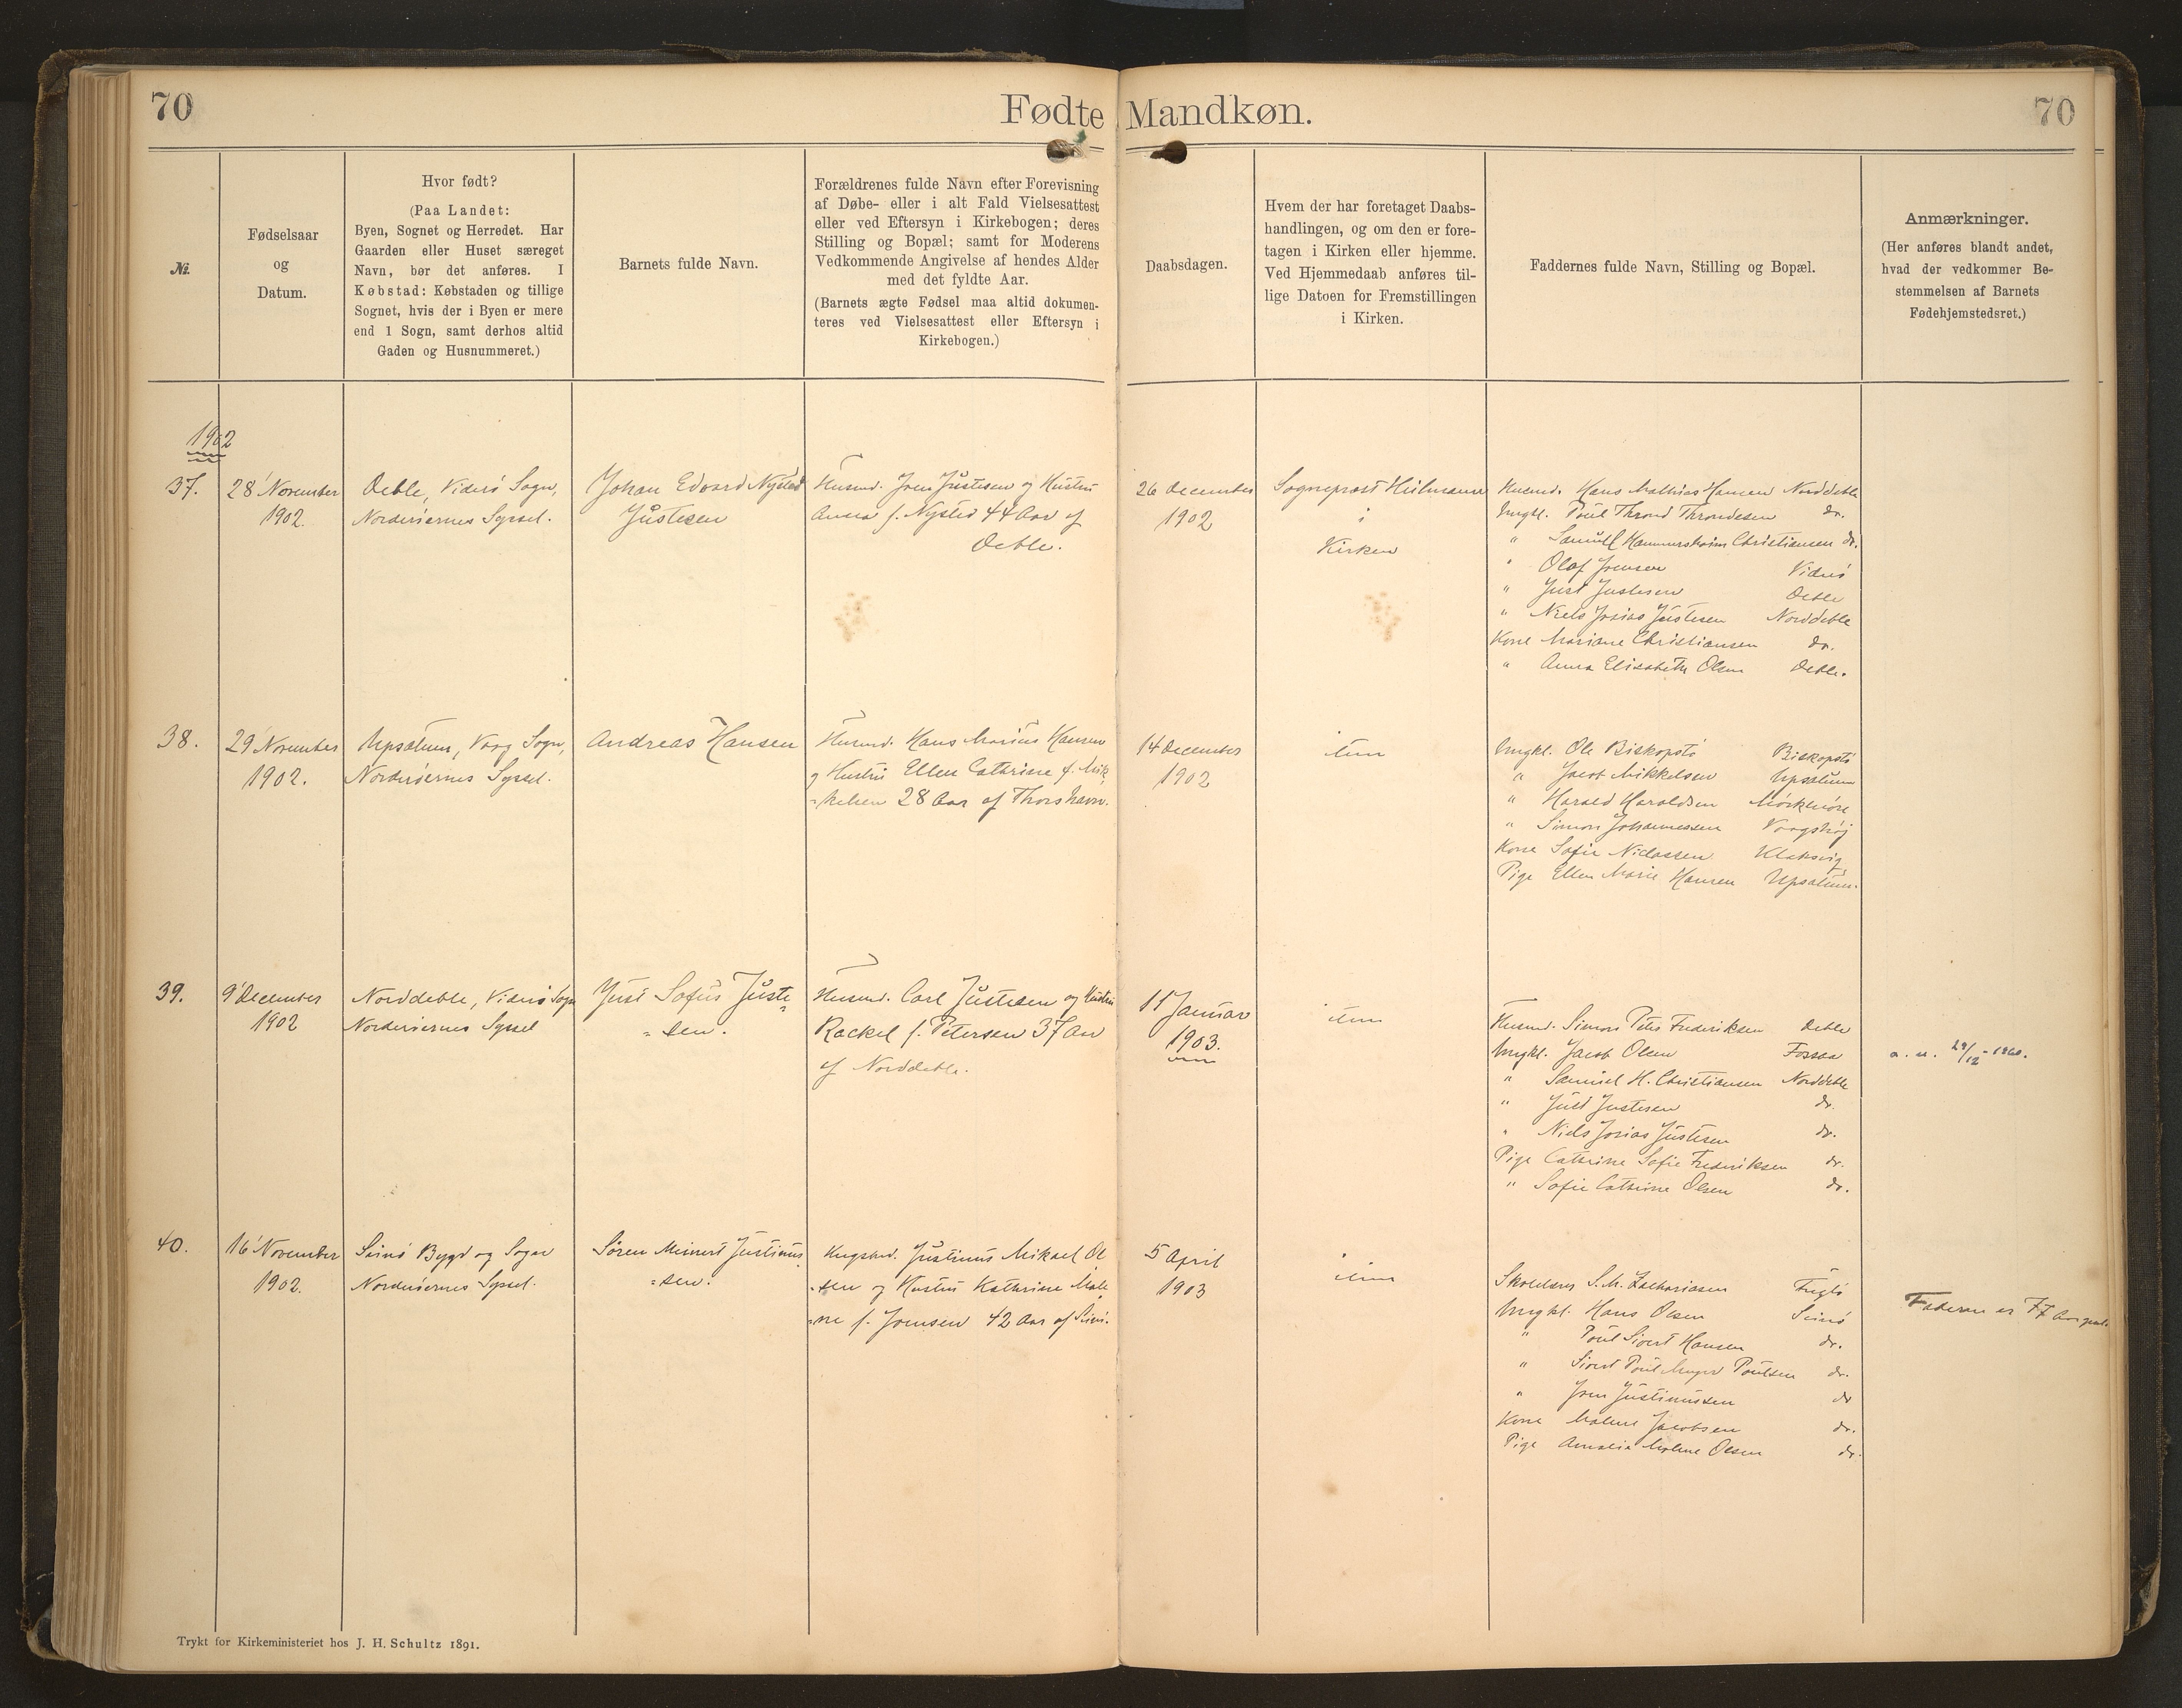 70
Fødte Mandkøn.
70
No.
Fødselsaar
og
Datum.
Hvor født?
(Paa Landet:
Byen, Sognet og Herredet. Har
Gaarden eller Huset særeget
Navn, bør det anføres. I
Købstad: Købstaden og tillige
Sognet, hvis der i Byen er mere
end 1 Sogn, samt derhos altid
Gaden og Husnummeret.)
Barnets fulde Navn.
Forældrenes fulde Navn efter Forevisning
af Døbe- eller i alt Fald Vielsesattest
eller ved Eftersyn i Kirkebogen; deres
Stilling og Bopæl; samt for Moderens
Vedkommende Angivelse af hendes Alder
med det fyldte Aar.
(Barnets ægte Fødsel maa altid dokumen-
teres ved Vielsesattest eller Eftersyn i
Kirkebogen.)
Daabsdagen.
Hvem der har foretaget Daabs-
handlingen, og om den er fore-
tagen i Kirken eller hjemme.
Ved Hjemmedaab anføres til-
lige Datoen for Fremstillingen
i Kirken.
Faddernes fulde Navn, Stilling og Bopæl.
Anmærkninger.
(Her anføres blandt andet,
hvad der vedkommer Be-
stemmelsen af Barnets
Fødehjemstedsret.)
1902
37.
28 November
1902.
Deble, Viderø Sogn,
Norderøernes Syssel.
Johan Edvard Nysted
Justesen
Husmd. Joen Justesen og Hustru
Anna f. Nysted 44 Aar af
Deble.
26 December
1902
Sognepræst Heilmann
i
Kirken
Husmd. Hans Mathias Hansen Norddeble
Ungkl. Poul Thrond Throndesen do.
" Samuel Hammershaimb Christiansen do.
" Olaf Joensen Viderø
" Just Justesen Deble
" Niels Josias Justesen Norddeble
Kone Mariane Christiansen do.
" Anna Elisabeth Olsen Deble.
38.
29 November
1902.
Upsalum, Vaag Sogn,
Norderøernes Syssel.
Andreas Hansen
Husmd. Hans Marius Hansen
og Hustru Ellen Cathrine f. Mik
-kelsen 28 Aar af Thorshavn.
14 December
1902
item
Ungkl. Ole Biskopstø Biskopstø
" Jacob Mikkelsen Upsalum
" Harald Haraldsen Mørkenøre
" Simon Johannessen Vaagshøj
Kone Sofie Niclassen Klaksvig
Pige Ellen Marie Hansen Upsalum.
39.
9 December
1902
Norddeble, Viderø Sogn
Norderøernes Syssel
Just Sofus Juste
-sen.
Husmd. Carl Justesen og Hustru
Rackel f. Petersen 37 Aar
af Norddeble.
11 Januar
1903.
item
Husmd. Simon Peter Frederiksen Deble
Ungkl. Jacob Olsen Forsaa
" Samuel H. Christiansen Norddeble
" Just Justesen do.
" Niels Josias Justesen do.
Pige Cathrine Sofie Frederiksen do.
" Sofie Cathrine Olsen do.
a. u. 29/12-1960.
40.
16 November
1902.
Svinø Bygd og Sogn
Norderøernes Syssel.
Søren Meinert Justinus
-sen.
Kngsbd. Justinus Mikael Ol
-sen og Hustru Kathrine Male
-ne f. Joensen 42 Aar af Svinø.
5 April
1903
item
Skolelærer S. M. Zachariasen Fuglø
Ungkl. Hans Olsen Svinø
" Poul Sivert Hansen do.
" Sivert Poul Poulsen do.
" Joen Justinussen do
Kone Malene Jacobsen do.
Pige Amalia Malene Olsen do.
Faderen er 77 Aar gml.
Trykt for Kirkeministeriet hos J. H. Schultz 1891.